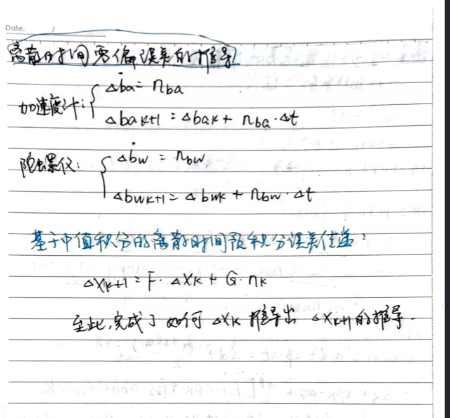 Date.
离散时间零偏误差的推导
加速度计: { Δḃa = nba
Δbak+1 = Δbak + nba·Δt
陀螺仪: { Δḃw = nbw
Δbwk+1 = Δbwk + nbw·Δt
基于中值积分的离散时间预积分误差传递:
ΔXk+1 = F·ΔXk + G·nk
至此,完成了如何ΔXk推导出ΔXk+1的推导.